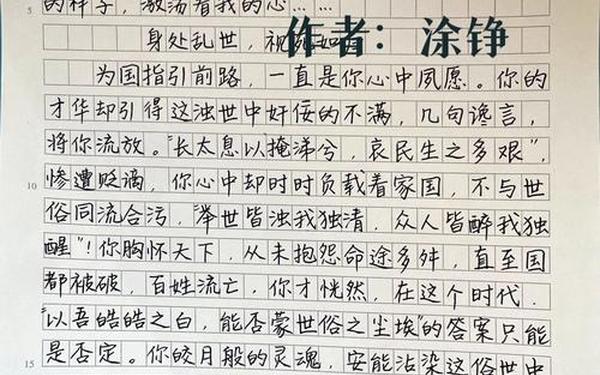 5
的样子，激荡着我的心……
身处乱世，视死如
作者：涂铮
为国指引前路，一直是你心中夙愿。你的
才华却引得这浊世中奸佞的不满，几句谗言，
将你流放。“长太息以掩涕兮，哀民生之多艰”，
10
惨遭贬谪，你心中却时时负载着家国，不与世
俗同流合污，“举世皆浊我独清，众人皆醉我独
醒”！你胸怀天下，从未抱怨命途多舛，直至国
都被破，百姓流亡，你才恍然，在这个时代.
“以吾皓皓之白，能否蒙世俗之尘埃”的答案只能
15
是否定。你皎月般的灵魂，安能沾染这俗世中